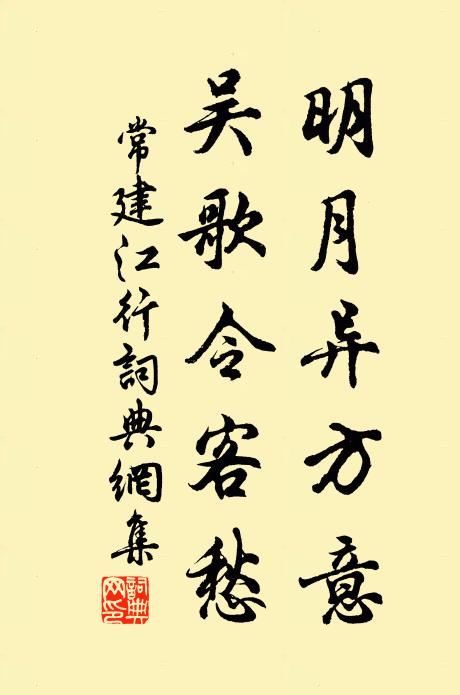 明月异方意
吴歌令客愁
常建江行詞典網集
詞典网印